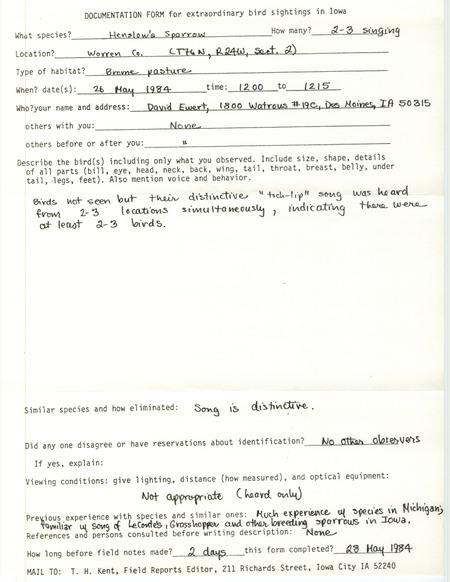 DOCUMENTATION FORM for extraordinary bird sightings in Iowa
What species? Henslow's Sparrow How many? 2-3 singing
Location? Warren Co. (T76N, R24W, Sect. 2)
Type of habitat? Brome pasture
When? date(s): 26 May 1984 time: 1200 to 1215
Who?your name and address: David Ewert, 1800 Watrous #19C, Des Moines, IA 50315
others with you: None
others before or after you: "
Describe the bird(s) including only what you observed. Include size, shape, details
of all parts (bill, eye, head, neck, back, wing, tail, throat, breast, belly, under
tail, legs, feet). Also mention voice and behavior.
Birds not seen but their distinctive "tick-lip" song was heard
from 2-3 locations simultaneously, indicating there were
at least 2-3 birds.
Similar species and how eliminated: Song is distinctive.
Did any one disagree or have reservations about identification? No other observers
If yes, explain:
Viewing conditions: give lighting, distance (how measured), and optical equipment:
Not appropriate (heard only)
Previous experience with species and similar ones: Much experience w species in Michigan;
familiar w song of LeConte's, Grasshopper and other breeding sparrows in Iowa.
References and persons consulted before writing description: None
How long before field notes made? 2 days this form completed? 28 May 1984
MAIL TO: T. H. Kent, Field Reports Editor, 211 Richards Street, Iowa City IA 52240